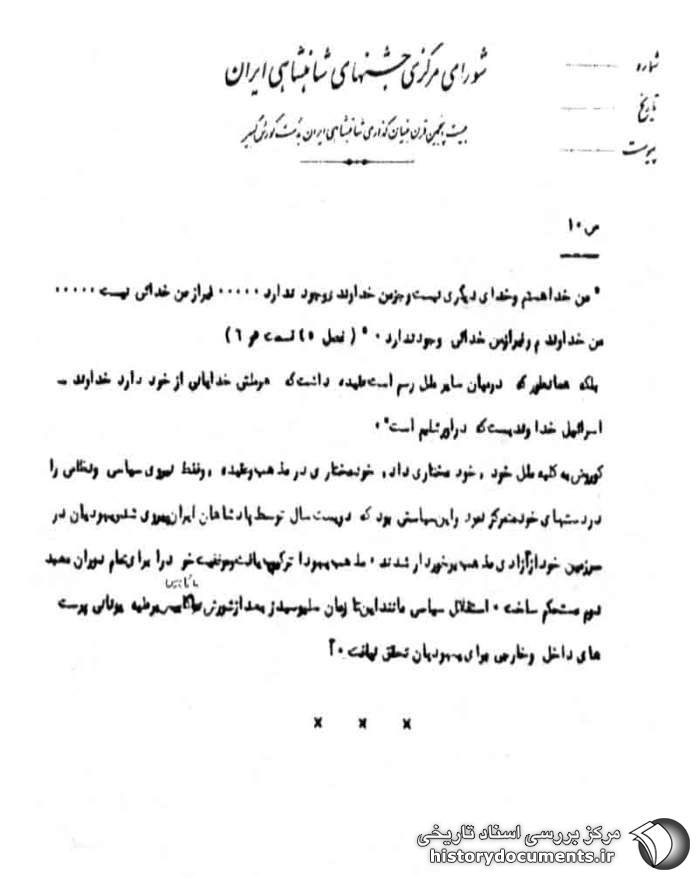 شماره
تاریخ
پیوست
شورای مرکزی جشنهای شاهنشاهی ایران
بیست و پنجمین قرن بنیان گذاری شاهنشاهی ایران بدست کورش کبیر
ص ۱۰
" من خدا هستم وخدای دیگری نیست وجزمن خداوندی وجود ندارد ۰۰۰۰۰ غیراز من خدائی نیست ۰۰۰۰۰
من خداوند م وغیرازمن خدائی وجود ندارد ۰ " ( فصل ۴۵ قسمت ۵و ۶ )
بلکه همانطور که درمیان سایر ملل رسم است عقیده داشت که هرملتی خدایانی از خود دارد خداوند ــ
اسرائیل خدا وندیست که دراورشلیم است ۰"
کوروش به کلیه ملل خود ، خود مختاری داد ، خودمختاری در مذهب وعقیده ، وفقط نیروی سیاسی ونظامی را
دردستهای خود متمرکز نمود واین سیاستی بود که دویست سال توسط پادشاهان ایران پیروی شد ویهودیان در
سرزمین خود ازآزادی مذهب برخوردار شدند ۰ مذهب یهودا ترکیب یافت وموقعیت خو درا برای تمام دوران معبد
دوم مستحکم ساخت ۰ استقلال سیاسی مانند این تا زمان سلوسیدز بعد ازشورش برعلیه یونانی پرست
های داخل وخارجی برای یهودیان تحقق نیافت ۰"
× × ×
مرکز بررسی اسناد تاریخی
historydocuments.ir